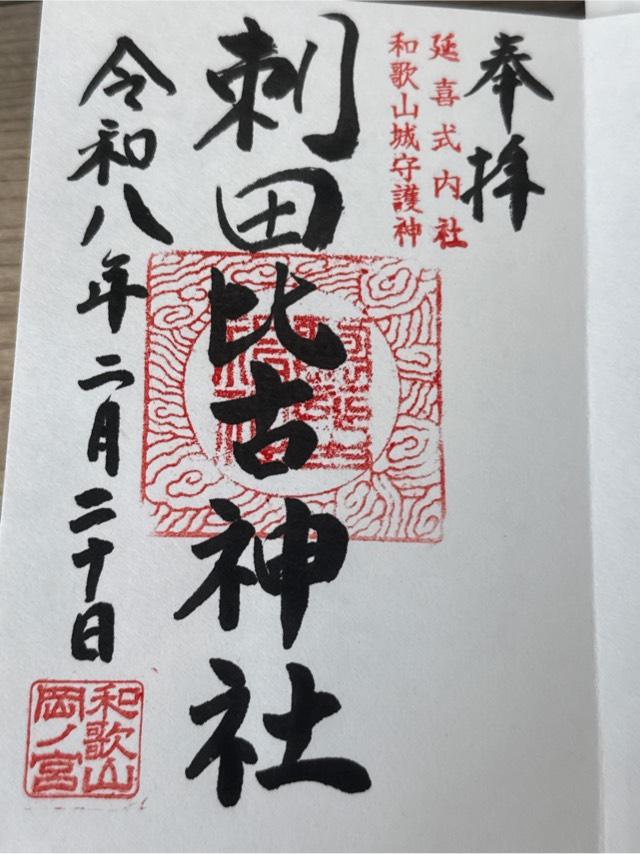 奉拝
延喜式内社
和歌山城守護神
刺田比古神社
令和八年二月二十日
和歌山
岡ノ宮